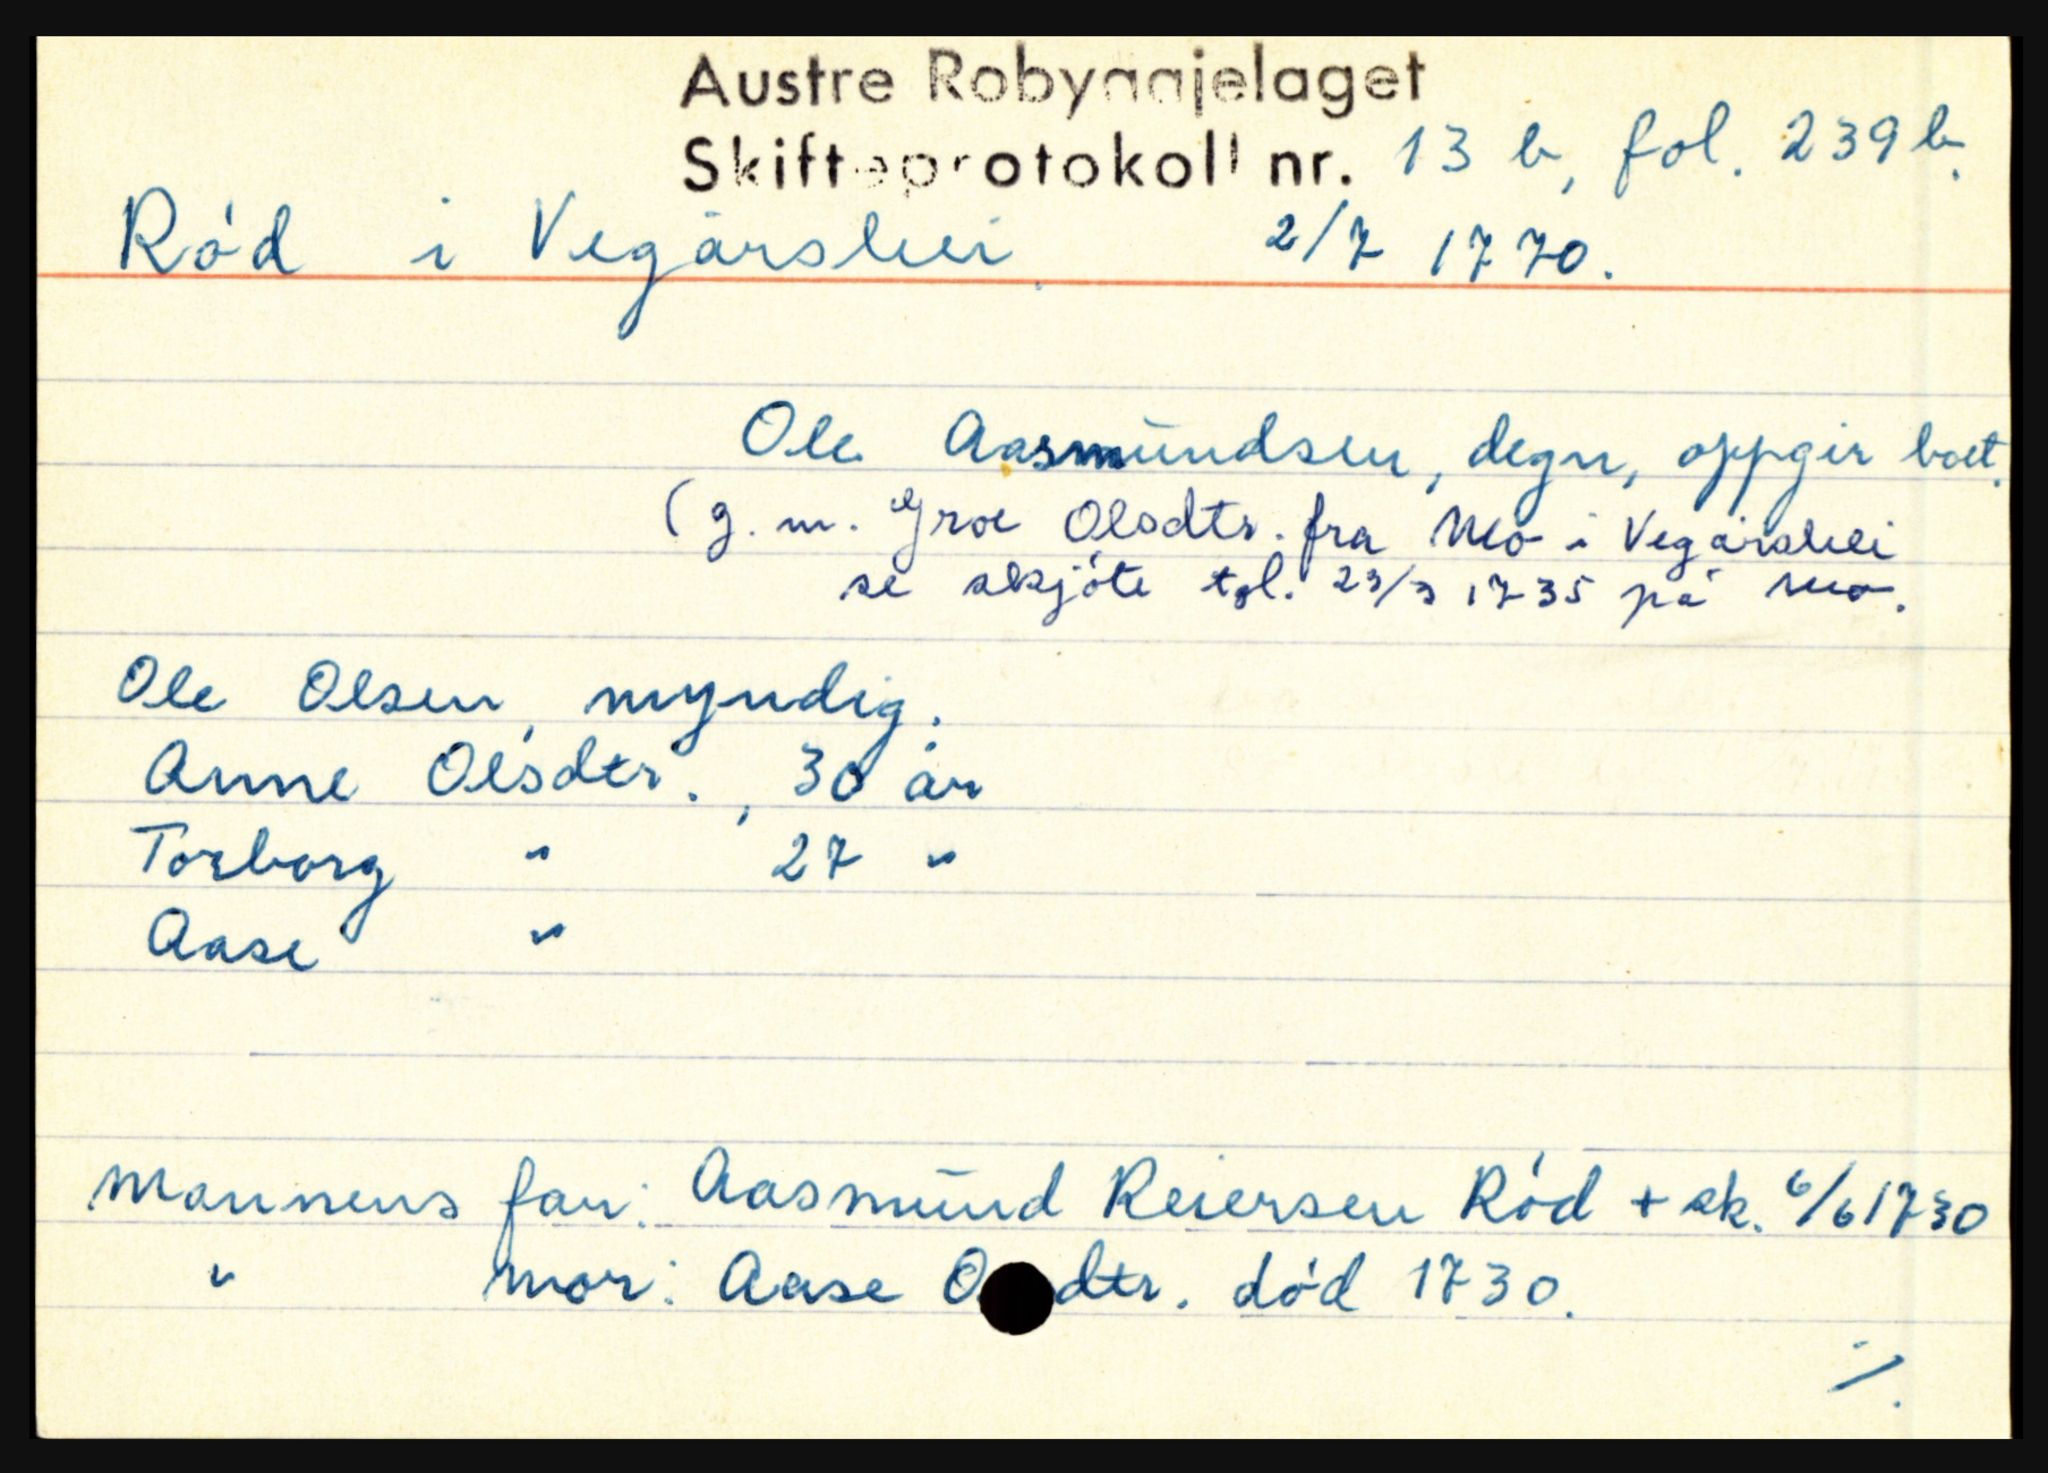 Austre Robyggjelaget
Skifteprotokoll nr. 13 b, fol. 239 b.
Ród i Vegårshei. 2/7 1770.
Ole Aasmundsen, degn, oppgir boet.
(g. m. Groe Olsdtr. fra Mo i Vegårshei
se skjóte tgl. 23/3 1735 på Mo.
Ole Olsen, myndig.
Anne Olsdtr., 30 år
Torborg " 27 "
Aase "
Mannens far: Aasmund Reiersen Ród + sk. 6/6 1730
" mor: Aase dtr. dód 1730.
./.